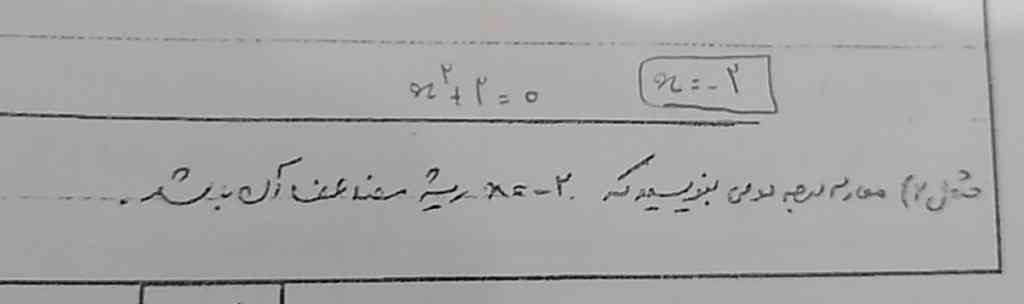 x = -۲
x^۲ + ۲ = ۰
مثال ۲) معادله درجه دومی بنویسید که x = -۲ ریشه مضاعف آن باشد.